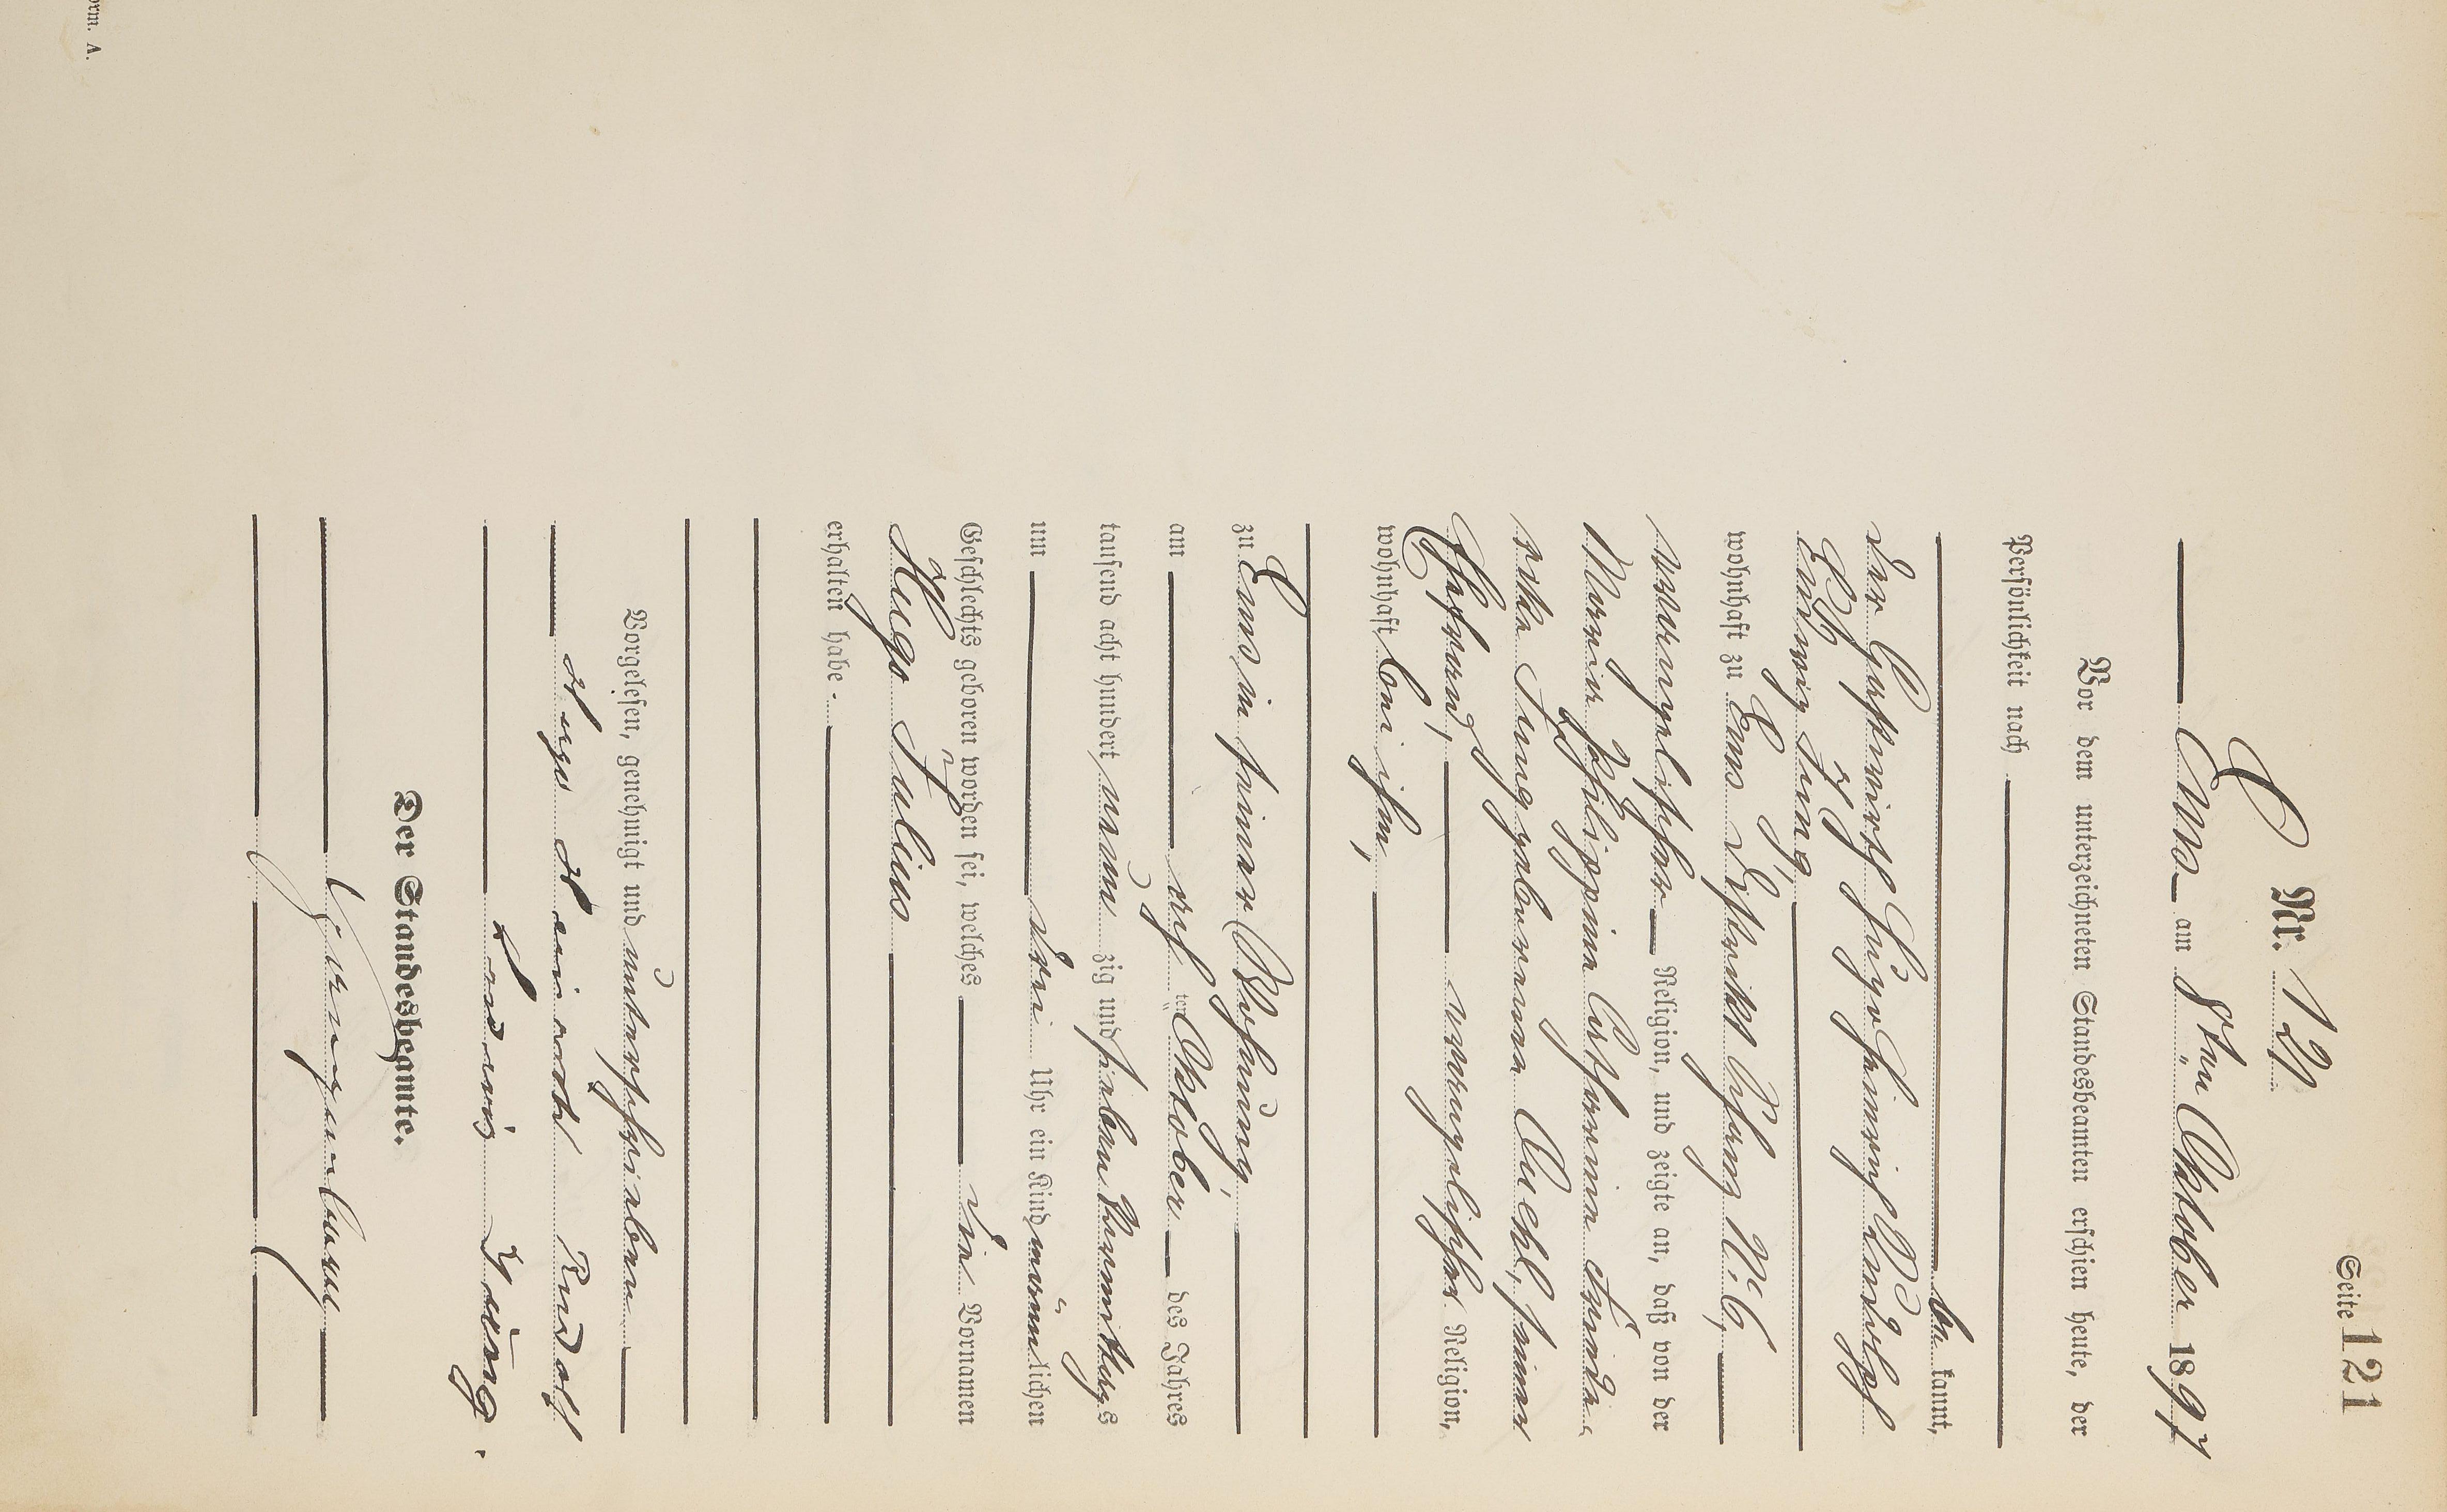 Seite 121
Nr. 121
Ems am 8ten Oktober 1897
Vor dem unterzeichneten Standesbeamten erschien heute, der
Persönlichkeit nach
be kannt,
der Gastwirth Hugo Heinrich Rudolph
Ludwig Jung,
wohnhaft zu Ems, Distrikt No. 6,
evangelischer Religion, und zeigte an, daß von der
Maria Philippine Catharina
Jung geborenen Buchl, seiner
Ehefrau, evangelischer Religion,
wohnhaft bei ihm,
zu Ems in seiner Wohnung,
am ten Oktober des Jahres
tausend acht hundert neunzig und sieben Vormittags
um drei Uhr ein Kind männlichen
Geschlechts geboren worden sei, welches die Vornamen
Hugo Julius
erhalten habe.
Vorgelesen, genehmigt und unterschrieben
Hugo Heinrich Rudolf
Ludwig Jung.
Der Standesbeamte.
orm. A.